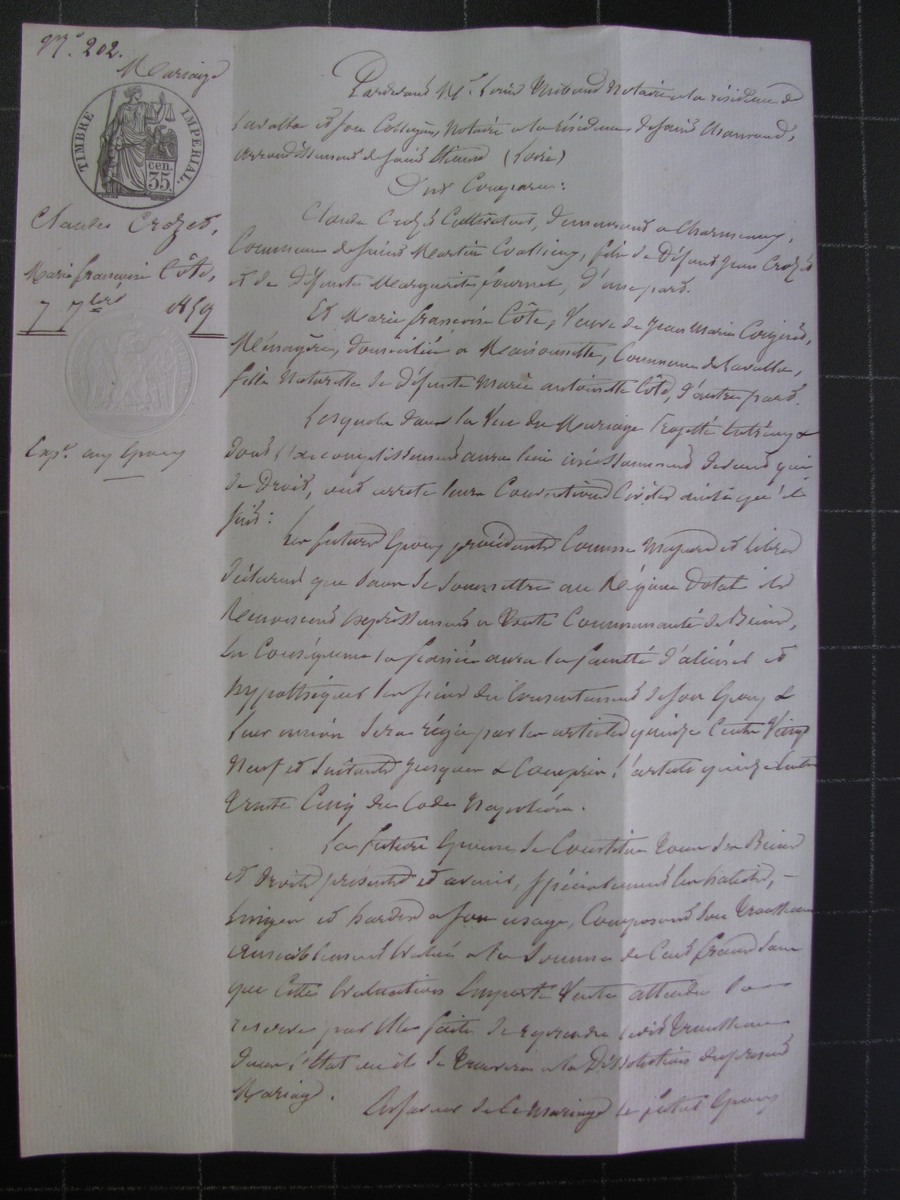 N.º 202.
Mariage
TIMBRE IMPERIAL.
cen.
35.
Claude Crozet,
Marie françoise Côte,
7 7bre 1859
Expon aux Epoux
Pardevant Me Louis Notaire à la résidence de
Lavalla et son Collègue, Notaire à la résidence de Saint Chamond,
arrondissement de Saint Etienne (Loire)
Ont Comparu:
Claude Crozet Cultivateur, demeurant à
Commune de Saint Martin fils de Défunt Jean Crozet
et de Défunte Marguerite fournet, d'une part.
Et Marie françoise Côte, Veuve de Jean Marie
Ménagère, domiciliée à Maisonnette, Commune de Lavalla,
fille Naturelle de Défunte Marie antoinette Côte, d'autre part.
Lesquels dans la Vue du Mariage Projetté entr'eux &
dont l'accomplissement aura lieu incessamment devant qui
de Droit, ont arrêté leurs Conventions Civiles ainsi qu'il
suit:
Les futurs Epoux procédants Comme Majeurs et Libres
Déclarent que Sans se Soumettre au Régime Dotal ils
Renoncent expressément à toute Communauté de Biens,
En Conséquence la future aura la faculté d'aliéner et
hypothéquer les siens du Consentement de son Epoux &
leur union sera régie par les articles quinze Cents Vingt
Neuf et Suivants jusques & Compris l'article quinze Cents
trente Cinq du Code Napoléon.
La future Epouse se Constitue tous ses Biens
et droits présents et avenir, spécialement les habits,
Linges et hardes à son usage, Composant son trousseau
amiablement évalué à la Somme de Cent francs Sans
que Cette évaluation Emporte Vente attendu la
réserve par Elle faite de reprendre ledit trousseau
dans l'état où il se trouvera à la Dissolution du présent
Mariage.
En faveur de Ce Mariage le futur Epoux